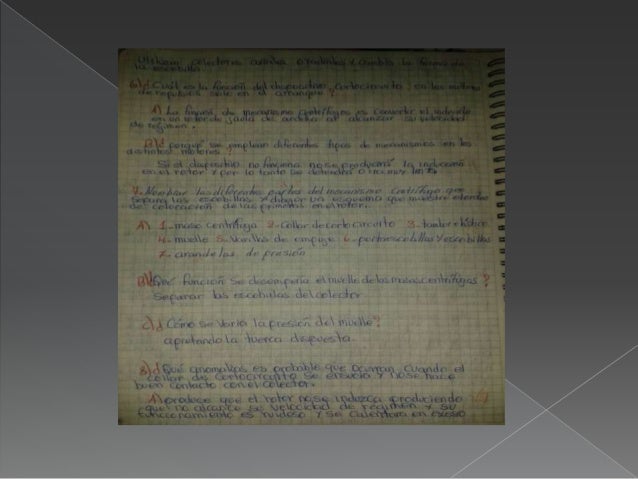 Utilizan colectores axiales o radiales y cambia la forma de
la escobilla.
6) ¿Cuál es la función del dispositivo cortocircuito en los motores
de repulsión sólo en el arranque?
A) La función de mecanismo centrífugo es convertir el inducido
en un rotor de jaula de ardilla al alcanzar su velocidad
de régimen.
B) ¿porqué se emplean diferentes tipos de mecanismos en los
distintos motores?
Si el dispositivo no funciona no se producirá la
en el rotor y por lo tanto se detendrá o ira muy lento
7- Nombrar las diferentes partes del mecanismo centrífugo que
separa las escobillas y dibujar un esquema que muestre el orden
de colocación de las primeras en el rotor.
A) 1- masa centrífuga 2- Collar de cortocircuito 3- tambor elástico
4- muelle 5- Varillas de empuje 6- portaescobillas y escobillas
7- arandelas de presión
B) ¿Qué función se desempeña el muelle de las masas centrífugas?
Separar las escobillas del colector
c) ¿Cómo se varía la presión del muelle?
apretando la tuerca dispuesta.
8) ¿Qué anomalías es probable que ocurran cuando el
collar de cortocircuito se ensucia y no se hace
buen contacto con el colector.
A) produce que el rotor no se induzca produciendo
que no alcance su velocidad de régimen y su
funcionamiento es ruidoso y se calentara en exceso